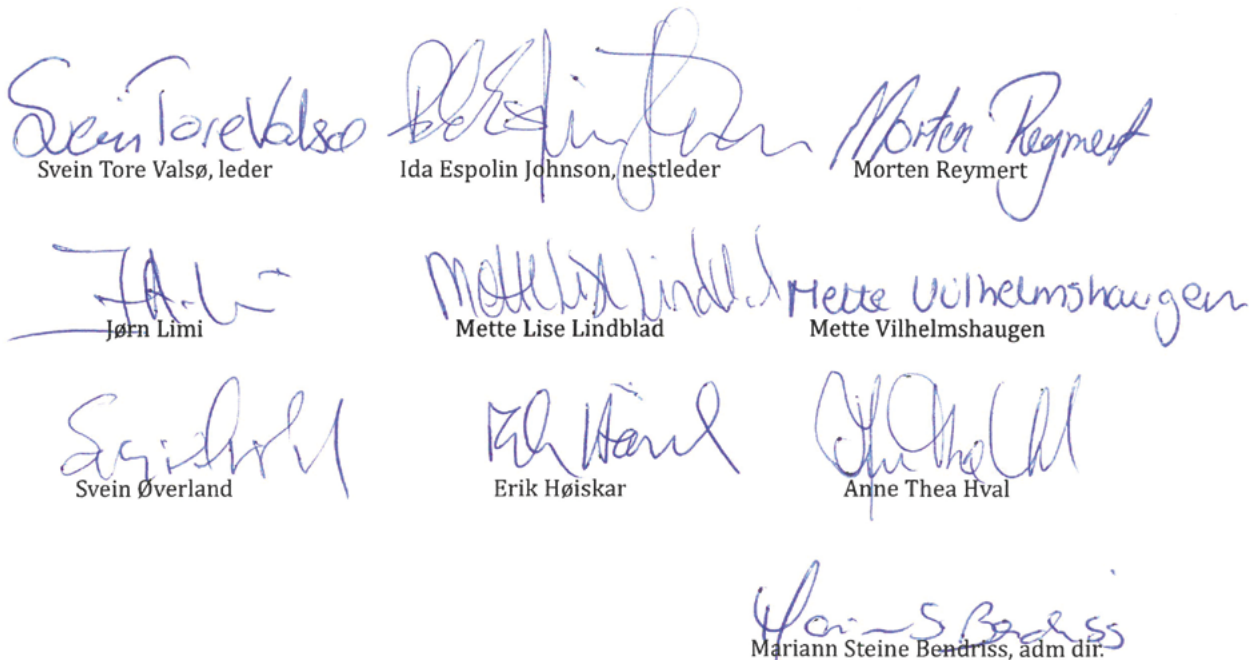 Svein Tore Valsø
Svein Tore Valsø, leder Ida Espolin Johnson, nestleder Morten Reymert
Morten Reymert
Mette Lise Lindblad Mette Vilhelmshaugen
Jørn Limi Mette Lise Lindblad Mette Vilhelmshaugen
Svein Øverland Erik Høiskar Anne Thea Hval
S Bendriss
Mariann Steine Bendriss, adm dir.